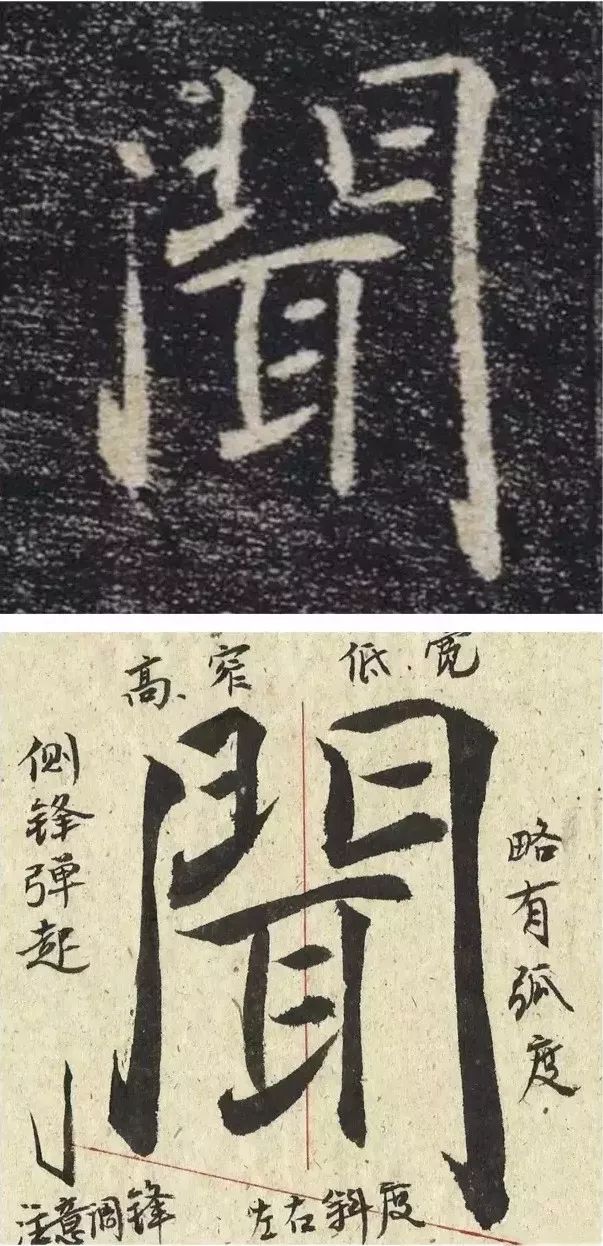 聞
高、窄 低、宽
聞
侧锋弹起
略有弧度
注意调锋
左右斜度